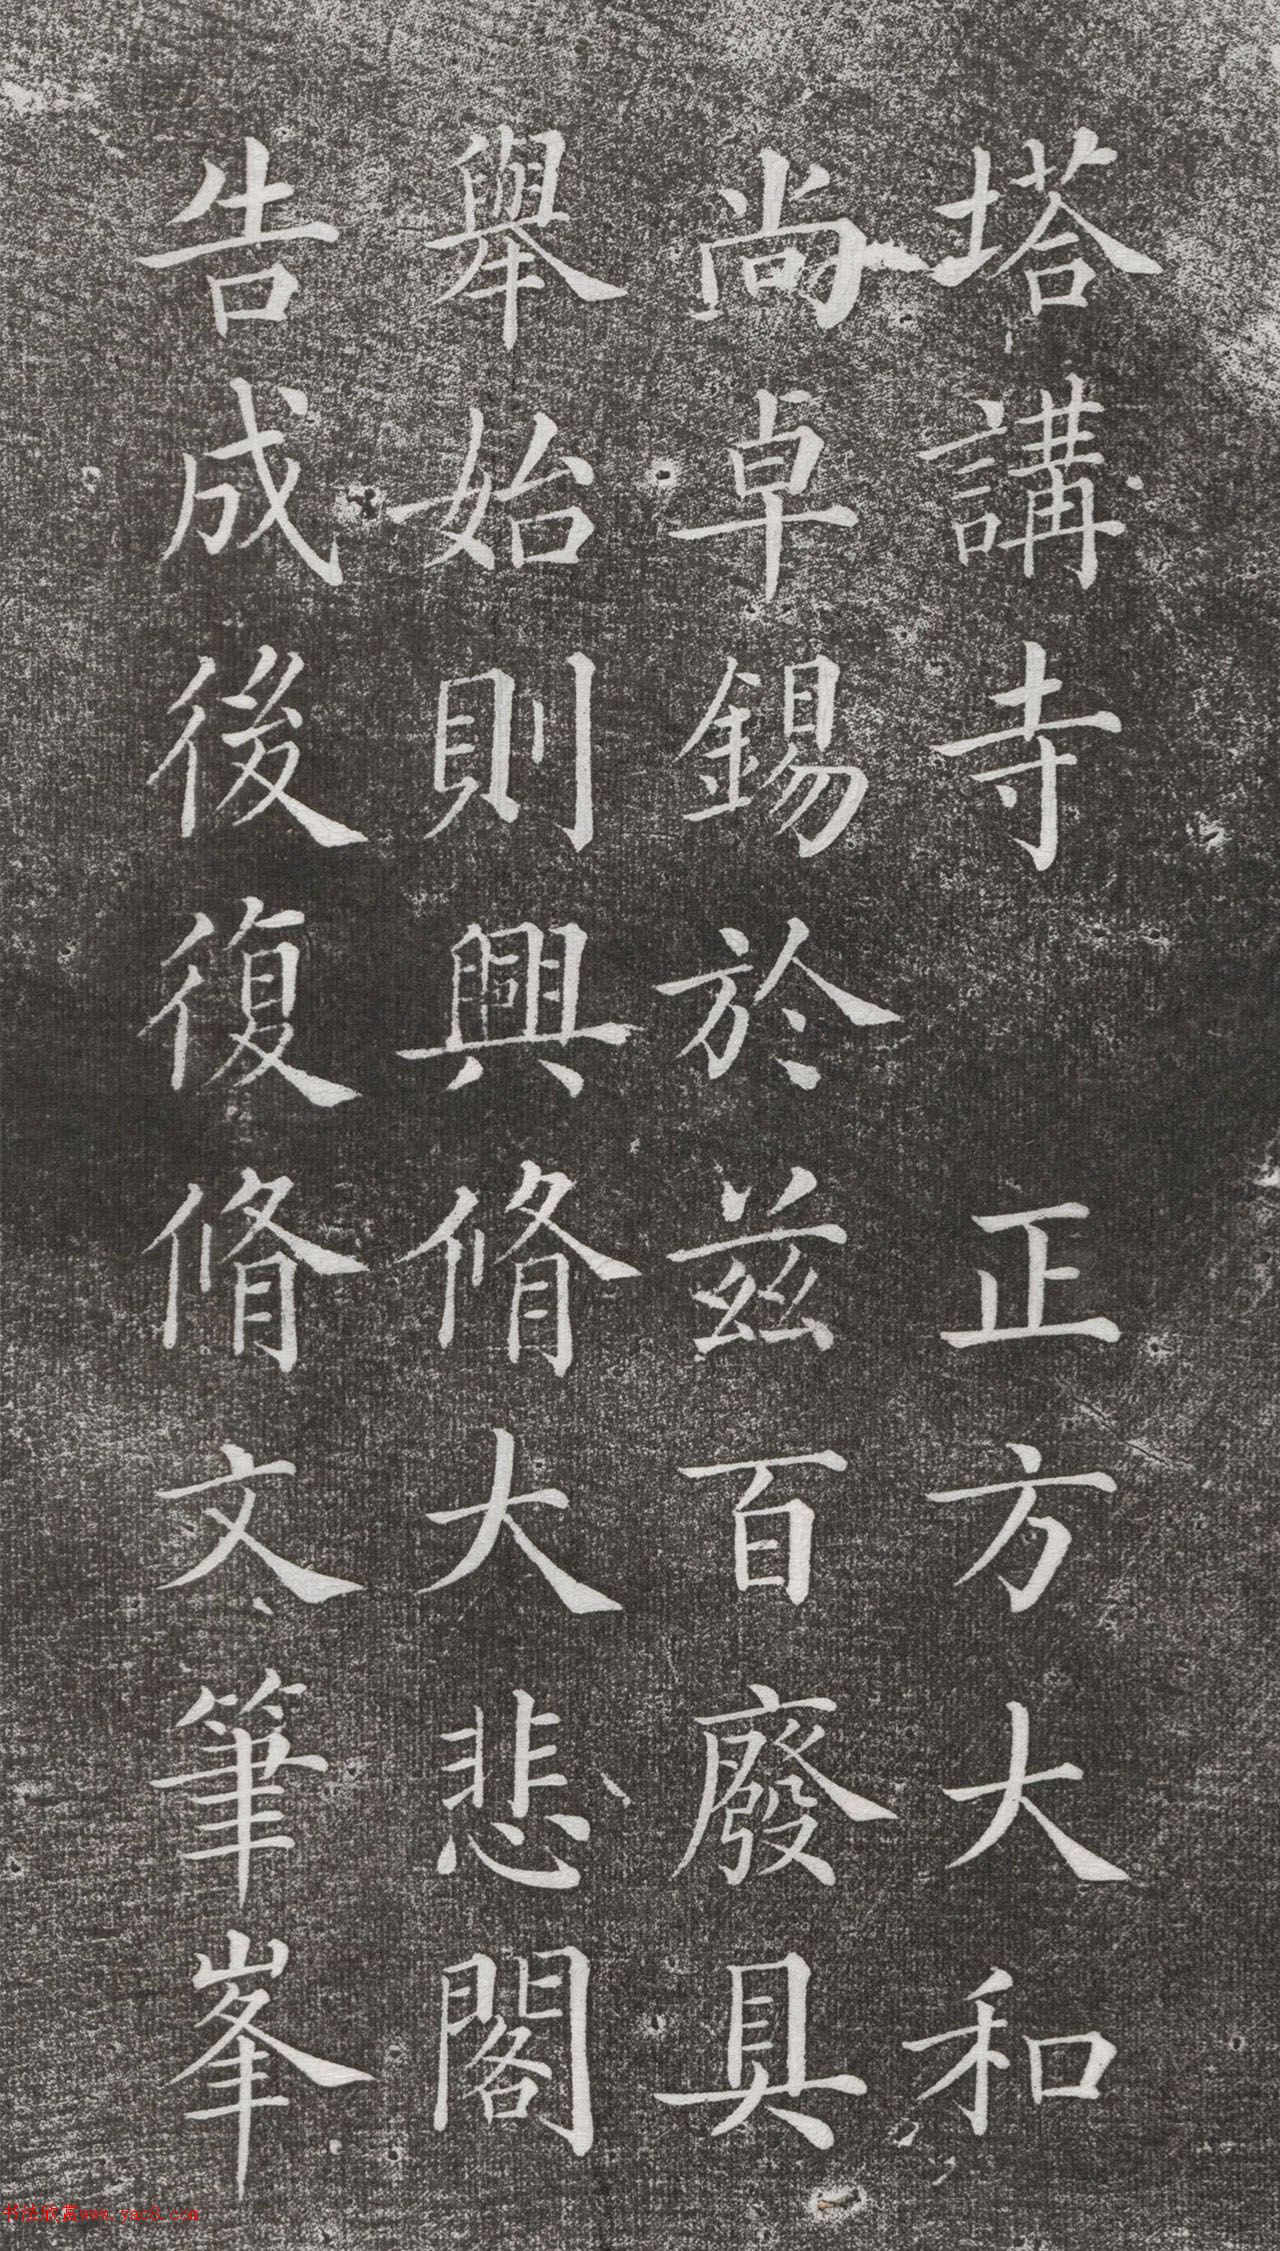 塔講寺　正方大和
尚卓錫於茲百廢具
舉始則興脩大悲閣
告成後復脩文筆峯
书法欣赏www.yac8.com